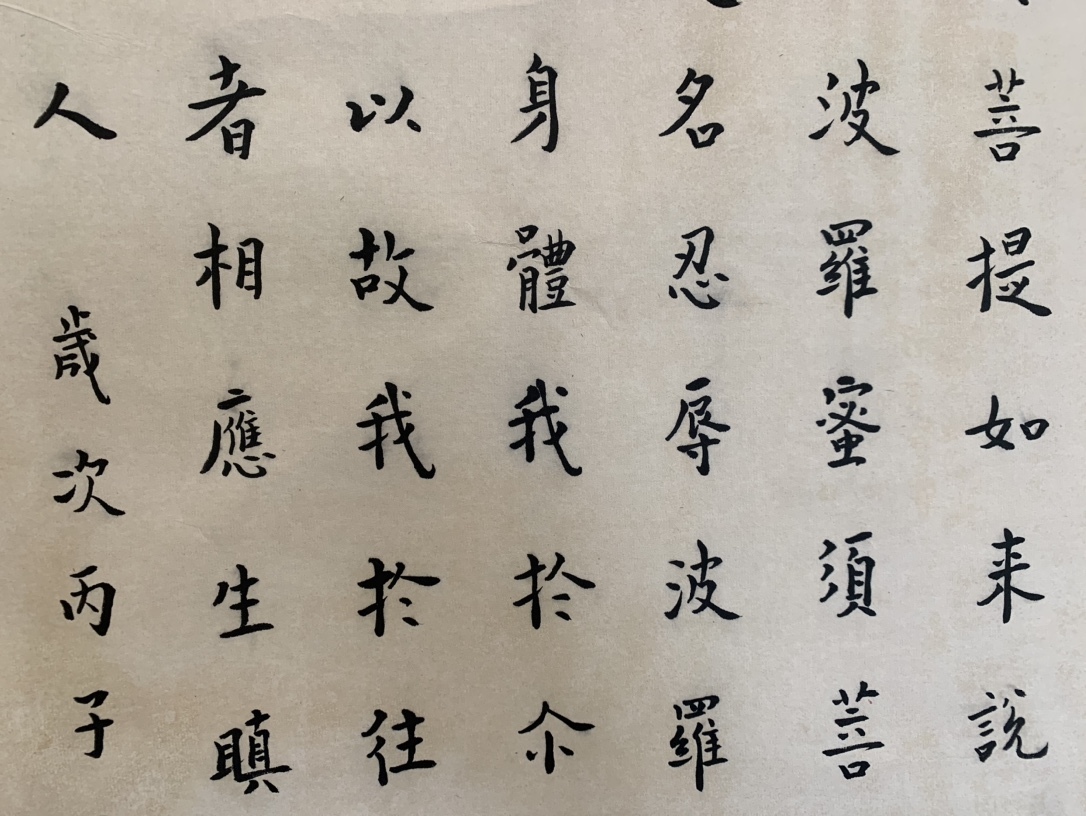 菩提如来說
波羅蜜須菩
名忍辱波羅
身體我於尒
以故我於往
者相應生瞋
人
歲次丙子